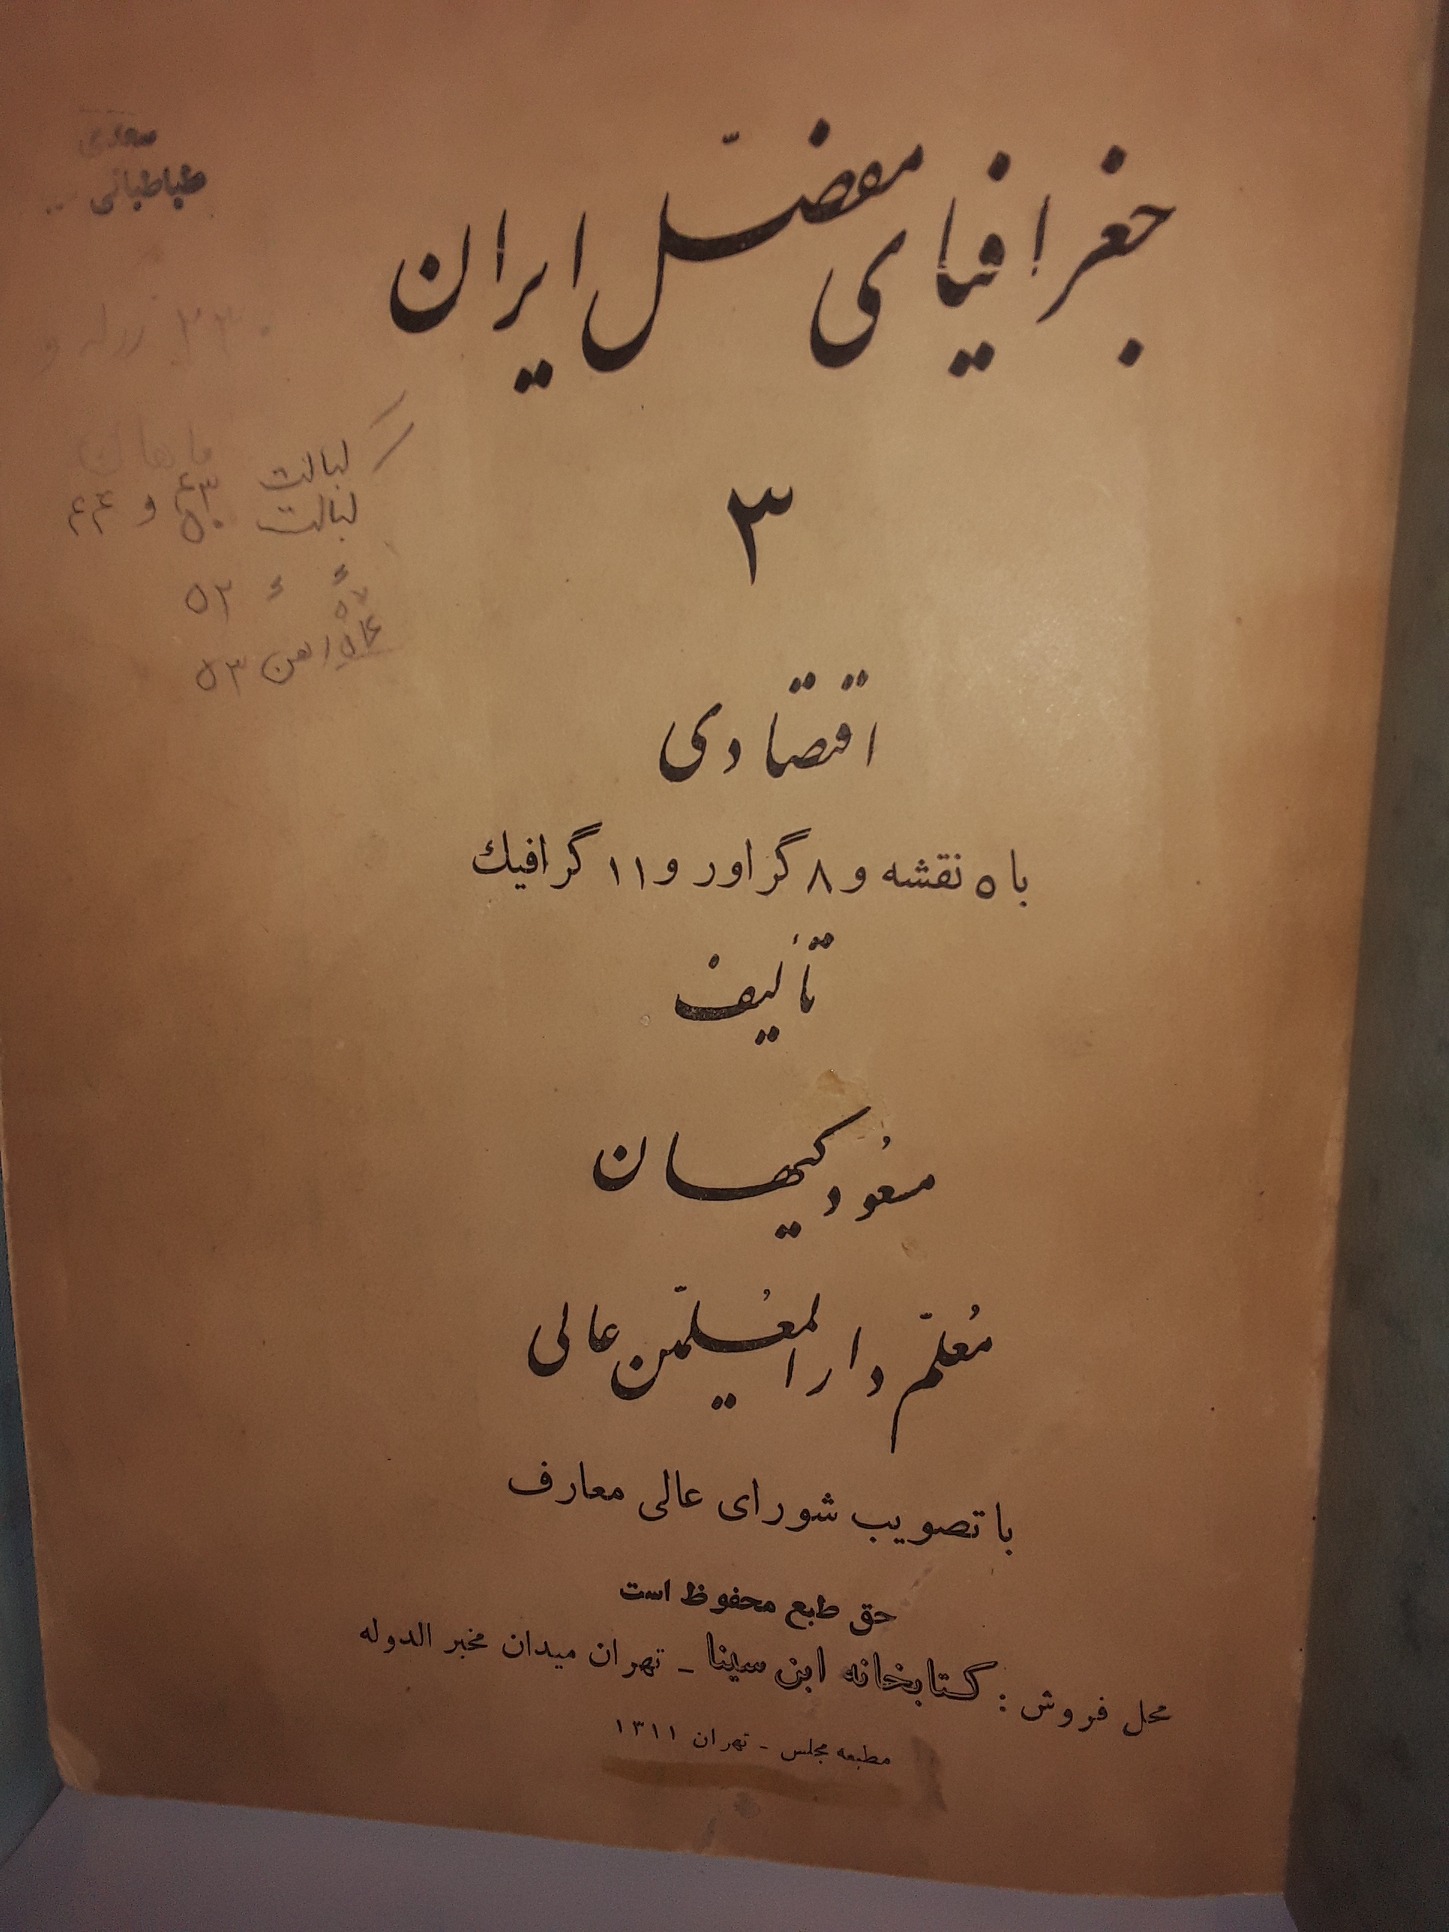 جغرافیای مفصّل ایران
طباطبائی
۳
لبالت ۴۳
لبالت ۵۰ و ۴۴
۵۲
۵۳
اقتصادی
با ۵ نقشه و ۸ گراور و ۱۱ گرافیك
تألیف
مسعُود کیهان
مُعلّم دارالمُعلّمین عالی
با تصویب شورای عالی معارف
حق طبع محفوظ است
محل فروش : کتابخانه ابن سینا ـ تهران میدان مخبر الدوله
مطبعه مجلس ـ تهران ۱۳۱۱